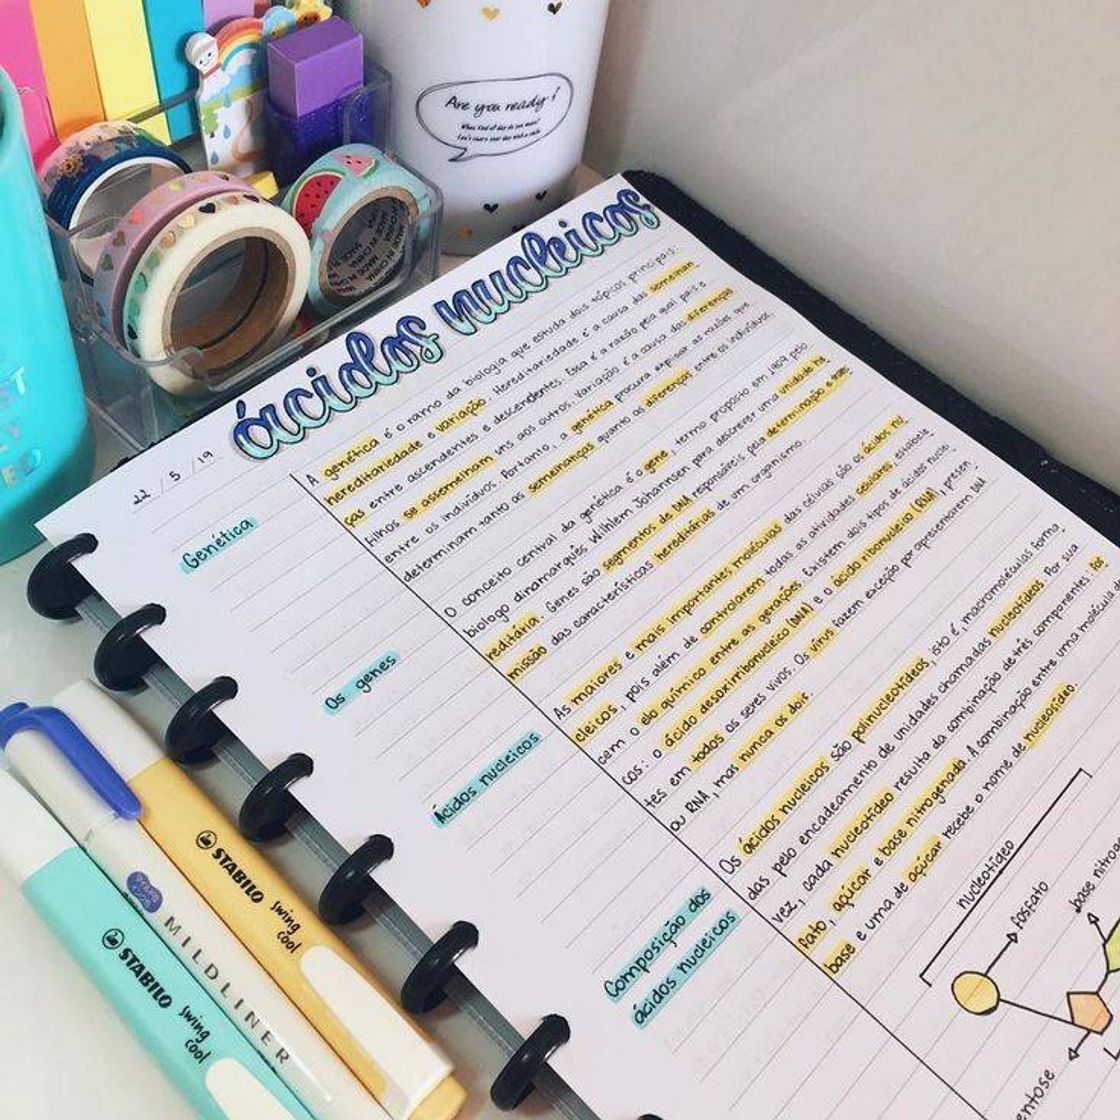 Are you ready?
ácidos nucleicos
22 / 5 / 19
Genética
A genética é o ramo da biologia que estuda dois tópicos principais:
hereditariedade e variação. Hereditariedade é a causa das semelhan
ças entre ascendentes e descendentes. Essa é a razão pela qual pais e
filhos se assemelham uns aos outros. Variação é a causa das diferenças
entre os indivíduos. Portanto, a genética procura explicar as razões que
determinam tanto as semelhanças quanto as diferenças entre os indivíduos.
Os genes
O conceito central da genética é o gene, termo proposto em 1909 pelo
biólogo dinamarquês Wilhlem Johannsen para descrever uma unidade he
reditária. Genes são segmentos de DNA responsáveis pela determinação e trans
missão das características hereditárias de um organismo.
Ácidos nucleicos
As maiores e mais importantes moléculas das células são os ácidos nu
cleicos, pois além de controlarem todas as atividades celulares, estabele
cem o elo químico entre as gerações. Existem dois tipos de ácidos nuclei
cos: o ácido desoxirribonucleico (DNA) e o ácido ribonucleico (RNA), presen
tes em todos os seres vivos. Os vírus fazem exceção por apresentarem DNA
ou RNA, mas nunca os dois.
Composição dos
ácidos nucleicos
Os ácidos nucleicos são polinucleotídeos, isto é, macromoléculas forma
das pelo encadeamento de unidades chamadas nucleotídeos. Por sua
vez, cada nucleotídeo resulta da combinação de três componentes: fos
fato, açúcar e base nitrogenada. A combinação entre uma molécula
base e uma de açúcar recebe o nome de nucleotídeo.
nucleotídeo
fosfato
base nitrog
entose
STABILO
swing
cool
MILDLINER
STABILO
swing
cool
MADE IN CHINA